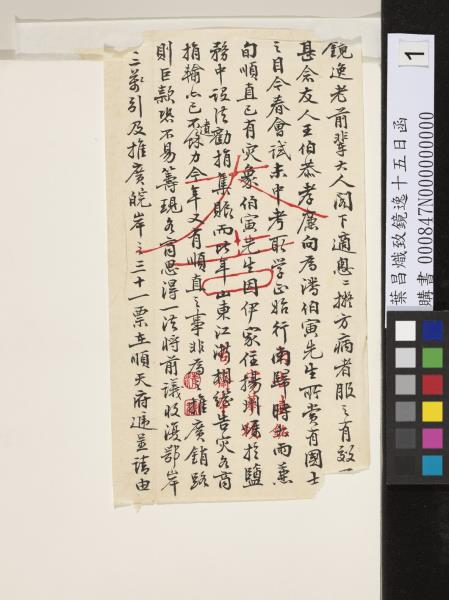 鏡逸老前輩大人閣下適患二拙方病者服之有效
甚合友人王伯恭孝廉向為潘伯寅先生所賞有國士
之目今春會試未中考取学正始行南歸時而兼
旬順直已有灾象伯寅先生因伊家住揚州屬於鹽
務中設法勸捐集賑而比年山東江浙相繼告灾各商
捐輸已不遺餘力今年又有順直之事非推廣銷路
則巨款殊不易籌現各商思得一法將前議收復鄂岸
二萬引及推廣皖岸之三十一票在順天府遞並請由
葉昌熾致鏡逸十五日函
購書 000847N000000000000
1